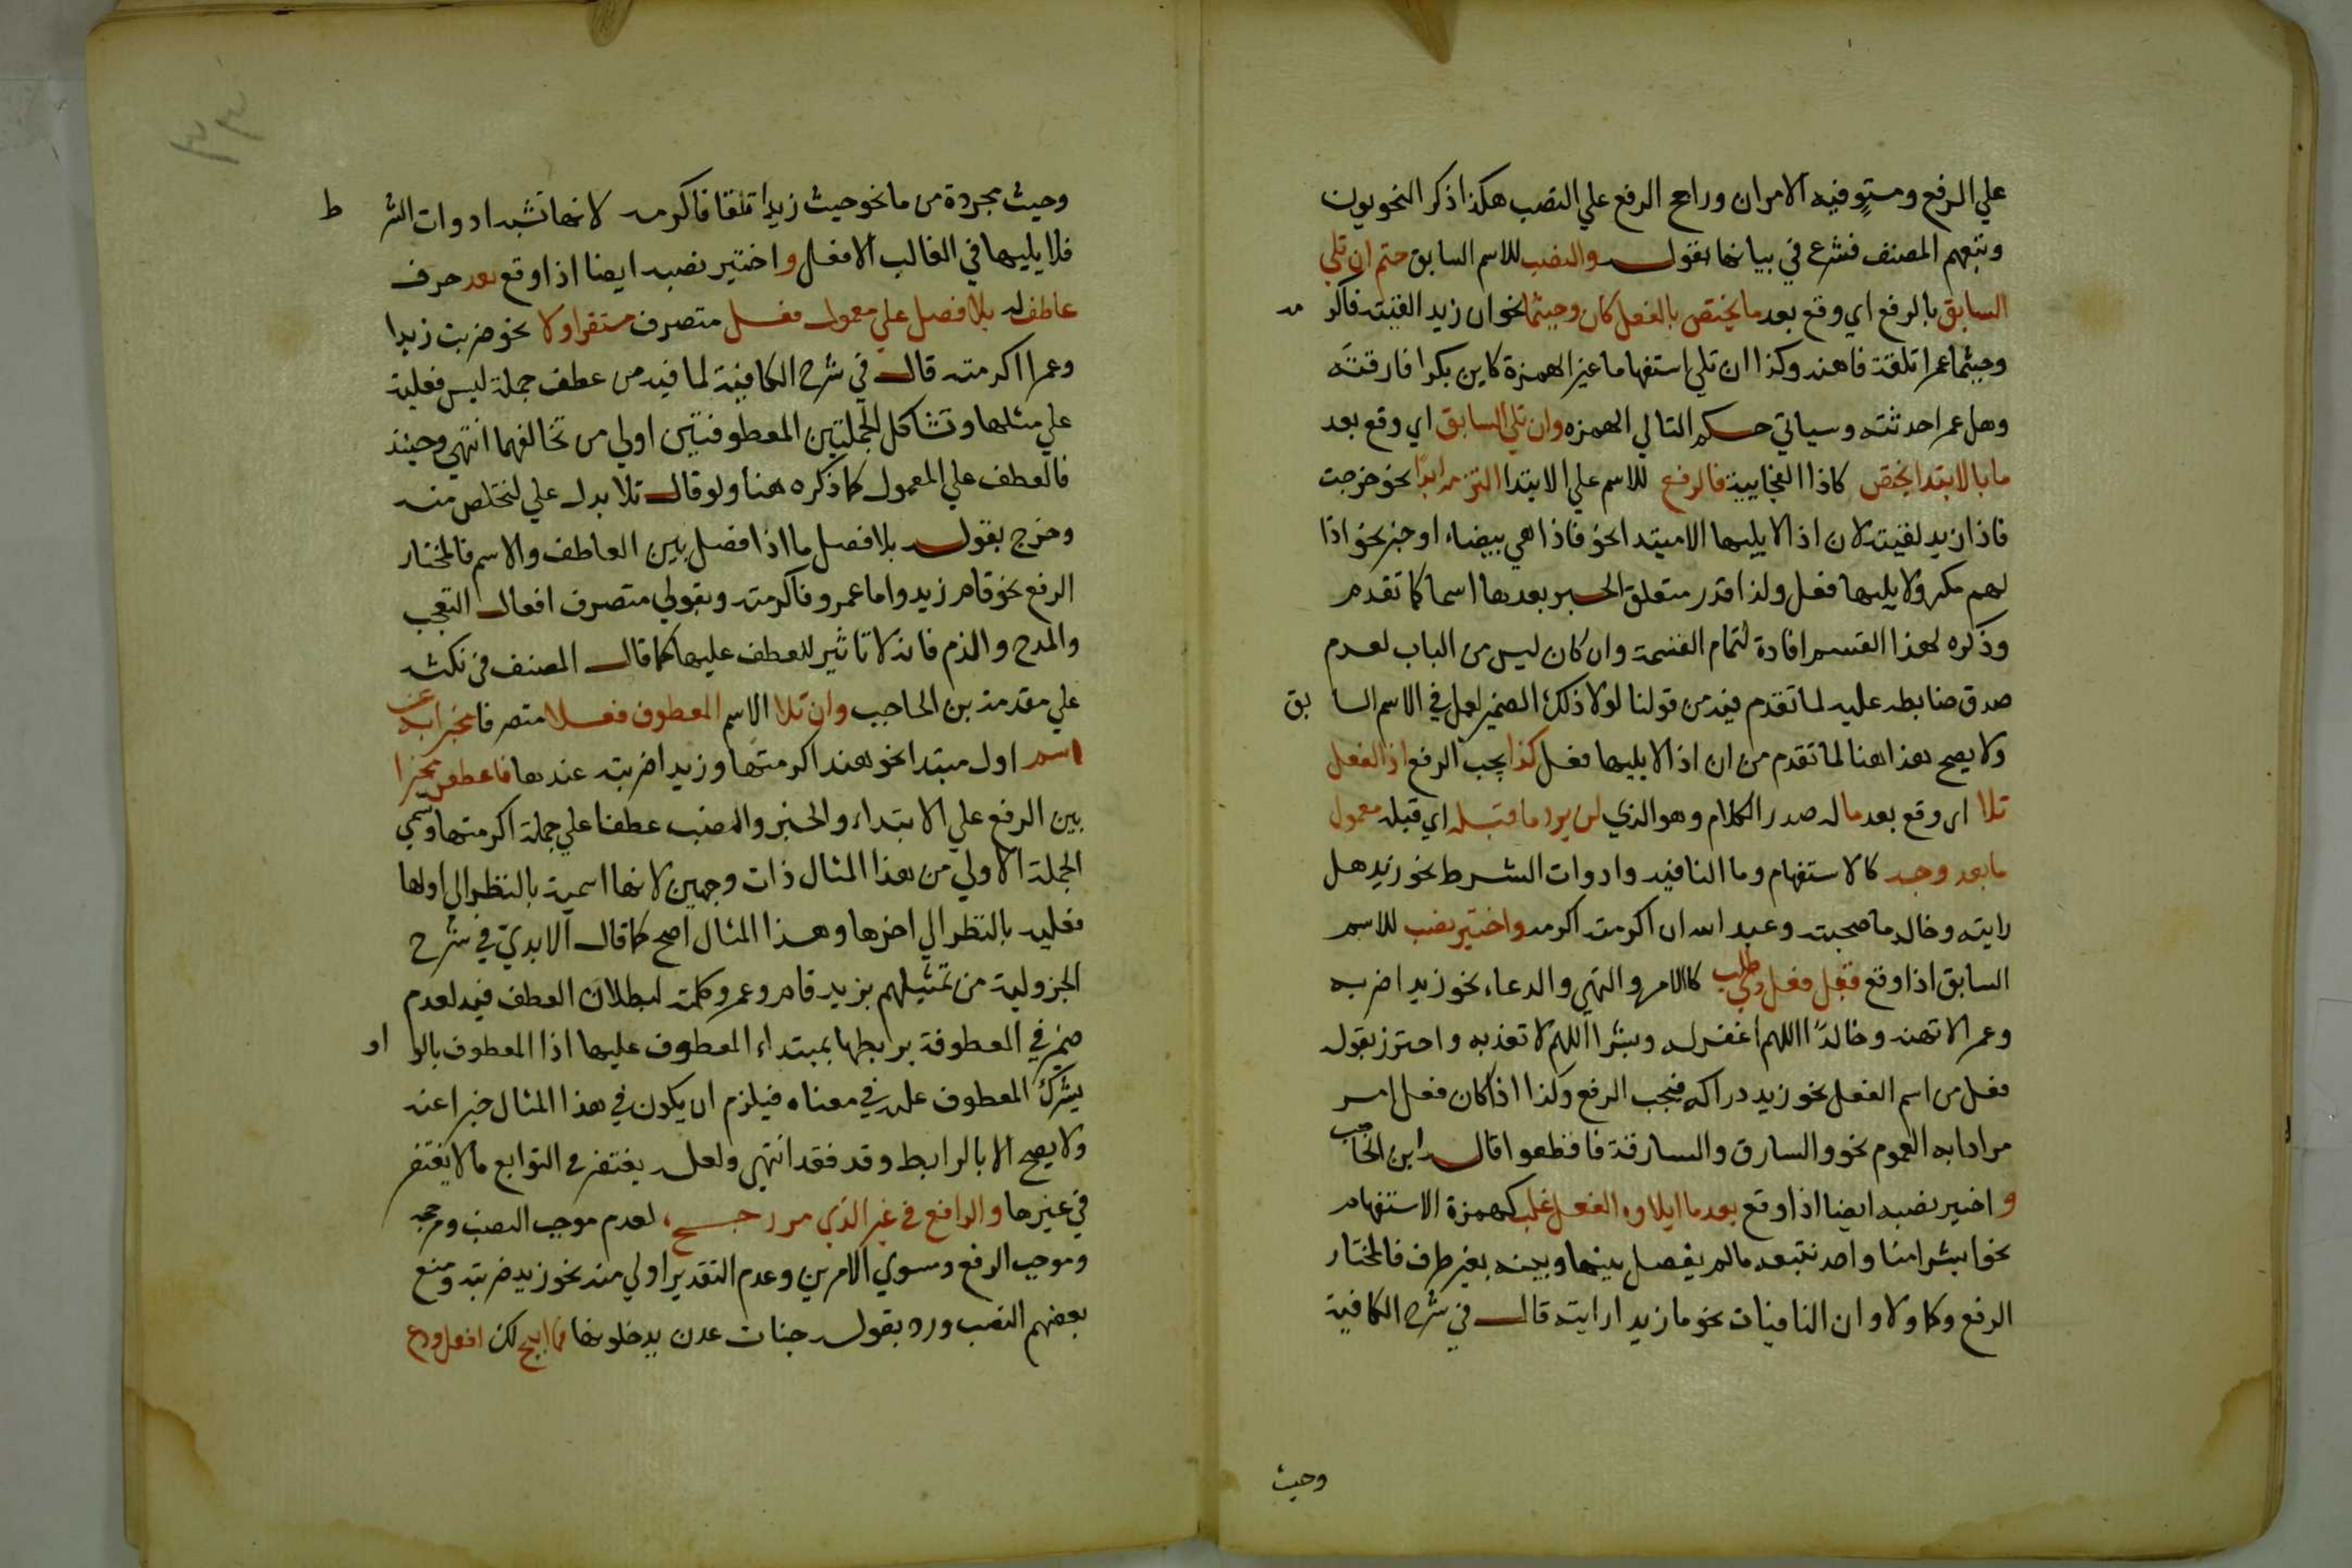 علي الرفع ومستو فيه الامران وراجح الرفع علي النصب هكذا ذكر النحويون
وتبعهم المصنف فشرع في بيانها بقوله والنصب للاسم السابق حتم ان تلي
السابق بالرفع اي وقع بعد ما يختص بالفعل كان وحيثما نحو ان زيد القيته فاكر مه
وحيثما عمرا تلقه فاهنه وكذا ان تلي استفهاما غير الهمزة كاين بكرا فارقته
وهل عمرا حدثته وسياتي حكم التالي الهمزه وان تلي السابق اي وقع بعد
ما بالابتدا يختص كاذا الفجايية فالرفع للاسم علي الابتدا التزمه ابدًا نحو خرجت
فاذا زيد لقيته لان اذا لا يليها الا مبتدا نحو فاذا هي بيضاء او خبر نحو اذا
لهم مكر ولا يليها فعل ولذا قدر متعلق الخبر بعدها اسما كما تقدم
وذكره لهذا القسم افادة لتمام القسمة وان كان ليس من الباب لعدم
صدق ضابطه عليه لما تقدم فيه من قولنا لولا ذلك الضمير لعمل في الاسم السا بق
ولا يصح هذا هنا لما تقدم من ان اذا لا يليها فعل كذا يجب الرفع اذا الفعل
تلا اي وقع بعد ما له صدر الكلام وهو الذي لن يرد ما قبله اي قبله معمول
ما بعد وجد كالاستفهام وما النافيه وادوات الشرط نحو زيد هل
رايته وخالد ما صحبته وعبد الله ان اكرمته اكرمه واختير نصب للاسم
السابق اذا وقع قبل فعل ذي طلب كالامر والنهي والدعاء نحو زيدا ضربه
وعمرا لا تهنه وخالدًا اللهم اغفر له وبشرا اللهم لا تعذبه واحترز بقوله
فعل من اسم الفعل نحو زيد دراكه فيجب الرفع وكذا اذا كان فعل امر
مرادا به العموم نحو والسارق والسارقة فاقطعوا قاله ابن الحاجب
واختير نصبه ايضا اذا وقع بعد ما ايلاوه الفعل غلب كهمزة الاستفهام
نحو ابشرا منا واحد نتبعه ما لم يفصل بينها وبينه بغير ظرف فالمختار
الرفع وكما ولا وان النافيات نحو ما زيدا رايته قال في شرح الكافية
وحيث
وحيث مجردة من ما نحو حيث زيدا تلقا فاكرمه لانها تشبه ادوات الشر ط
فلا يليها في الغالب الا فعل واختير نصبه ايضا اذا وقع بعد حرف
عاطف له بلا فصل علي معمول فعل متصرف مستقر اولا نحو ضربت زيدا
وعمرا اكرمته قال في شرح الكافية لما فيه من عطف جملة ليس فعلية
علي مثلها وتشاكل الجملتين المعطوفتين اولي من تخالفهما انتهي وحينئذ
فالعطف علي المعمول كما ذكره هنا ولو قال تلا بدل علي لتخلص منه
وخرج بقوله بلا فصل ما اذا فصل بين العاطف والاسم فالمختار
الرفع نحو قام زيد واما عمرو فاكرمته وبقولي متصرف افعال التعجب
والمدح والذم فانه لا تاثير للعطف عليها كما قال المصنف في نكته
علي مقدمة بن الحاجب وان تلا الاسم المعطوف فعلا متصرفا مخبرا به عن
اسم اول مبتدا نحو هند اكرمتها وزيدا ضربته عندها فاعطفن مخيرا
بين الرفع علي الابتداء والخبر والنصب عطفا علي جملة اكرمتها وتسمي
الجملة الاولي من هذا المثال ذات وجهين لانها اسمية بالنظر الي اولها
فعليه بالنظر الي اخرها وهذا المثال اصح كما قال الابدي في شرح
الجزولية من تمثيلهم بزيد قام وعمرو كلمته لبطلان العطف فيه لعدم
ضمير في المعطوفة يربطها بمبتداء المعطوف عليها اذا المعطوف بالو او
يشرك المعطوف عليه في معناه فيلزم ان يكون في هذا المثال خبرا عنه
ولا يصح الا بالرابط وقد فقد انتهي ولعله يغتفر في التوابع ما لا يغتفر
في غيرها والرافع في غير الذي مر رجح لعدم موجب النصب ومرجحه
وموجب الرفع ومسوي الامرين وعدم التقدير اولي منه نحو زيد ضربته ومنع
بعضهم النصب ورد بقوله جنات عدن يدخلونها فما ابيح لك افعل ودع